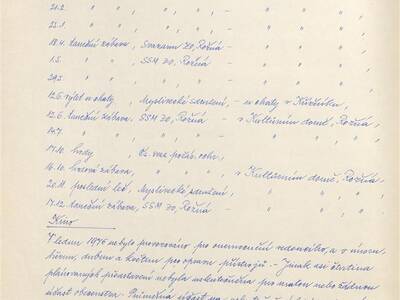 21.2. " " , " , " , – " " , " ,
22.1. " " , " , " , – " " , " ,
18.4. taneční zábava, Svazarm ZO, Rožná – " " , " ,
1.5. " " , SSM ZO, Rožná – " " , " ,
" " , " " , " – " " , " ,
12.6. výlet u chaty, Myslivecké sdružení, – u chaty v
12.6. taneční zábava, SSM ZO, Rožná, – v Kulturním domě, Rožná,
14.7. " " , " " , " – " " , " ,
17.10. hody , – " " , " ,
16.10. hodová zábava, – v Kulturním domě, Rožná,
20.11. poslední leč, Myslivecké sdružení, – " " , " ,
17.12. taneční zábava, SSM ZO, Rožná – " " , " ,
Kino
V lednu 1976 nebylo provozováno pro onemocnění vedoucího, a v únoru,
březnu, dubnu a květnu pro opravu přístrojů. – Jinak asi čtvrtina
plánovaných představení nebyla uskutečněna pro malou nebo žádnou
účast obecenstva. Průměrná účast na